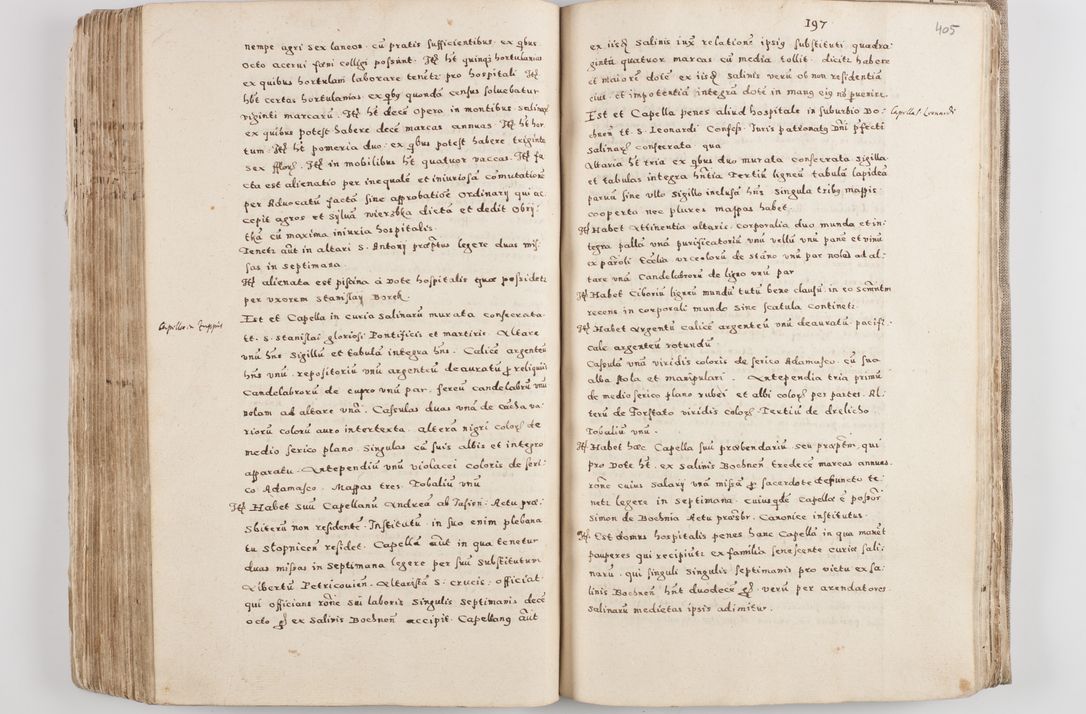 nempe agri sex laneos. cũ pratis sufficientibus. ex qbus
octo acerui fœni colligi possunt. Itẽ ht quinqꝫ hortulanias
ex quibus hortulani laborare tenẽtr pro hospitali. Itẽ
hẽt certas hortulanias. ex qbꝯ quondã census soluebatur
viginti marcarũ. Itẽ ht decẽ opera in montibus. salinaꝝ
ex quibus potest habere decẽ marcas annuas. Itẽ ht hor
tum. Itẽ ht pomeria duo. ex qbus potest habere triginta
sex flloꝝ. Itẽ in mobilibus ht quatuor vaccas. Itẽ fa
cta est alienatio per inequalẽ et iniuriosã cõmutationẽ
per Aduocatũ factã sine approbatiõe ordinarij qui ac
cepit agros et syluã wierzbka dictã et dedit obrj
tkã cũ maxima iniuria hospitalis.
Tenetr aũt in altari S. Antonij præptus legere duas mis
sas in septimana
Itẽ alienata est piscina à dote hospitalis quæ possidetr
per vxorem Stanislaj Borek.
Capella in Zuppis
Est et Capella in curia salinarũ murata consecrata
tt. S. Stanislai gloriosi Pontificis et martiris. Altare
vnũ hñs sigillũ et tabulã integra hñs. Calicẽ argenteũ
hñs vnũ. repositoriũ vnũ argenteũ deauratũ ꝓ reliquijs
Candelabrorũ de cupro vnũ par. ferreũ candelabrũ vnũ
Nolam ad altare vnã. Casulas duas vnã de cacha va
riorũ colorũ auro intertexta. alterã nigri coloris de
medio serico plano. Singulas cũ suis albis et integro
apparatu. Antependiũ vnũ violacei coloris de seri
co Adamasco. Mappas tres. Tobaliũ vnũ
Itẽ Habet suũ Capellanũ Andreã ab Jusien. Actu præ
sbiterũ non residentẽ. Institutũ. in suo enim plebana
tu Stopnicen residet. Capella aũt in qua tenetur
duas missas in septimana legere per suũ substitutum
Albertũ Petricouien. Altaristã S. Crucis. officiat
qui officians rõne sui laboris singulis septimanis decẽ
octo gꝶ ex salinis Bochnen accipit. Capellanꝯ aũt
197
405
ex iisdẽ salinis iuxta relationẽ ipsiꝯ substituti quadra
gintũ quatuor marcas cũ media tollit. dicitr habere
et maiorẽ dotẽ ex iisdẽ salinis verũ ob non residentiã
eiut. et impotentiã integrã dotẽ in manꝯ eiꝯ nõ puenire.
Capella S. Leonardi
Est et Capella penes aliud hospitale in suburbio Bo
chnen tt. S. Leonardi Confess. Iuris patronatꝯ Dñi p̃fecti
salinarũ consecrata qua
Altaria ht tria ex qbus duo murata consecrata sigilla
et tabulas integra hñtia Tertiũ ligneũ tabulã lapideã
paruã sine vllo sigillo inclusã hñs. Singula tribꝯ mappis
cooperta nec plures mappas habet
Itẽ Habet attinentia altaris. Corporalia duo munda et in
tegra pallã vnã purificatoriũ vnũ vellũ vnũ panẽ et vinũ
ex parochiali Ecclia vrceolorũ de stãno vnũ par nolas ad al
tare vnã Candelabrorũ de ligno vnũ par
Itẽ Habet Ciboriũ ligneũ mundũ tutũ bene clausũ. in eo scrmẽtm
recens in corporali mundo sine scatula continetr
Itẽ Habet Argentũ calicẽ argenteũ vnũ deauratũ. pacifi
cale argenteũ rotundũ
Casulã vnã viridis coloris de serico Adamasco. cũ sua
alba stola et manipulari. Antependia tria primũ
de medio serico plano rubei et albi coloris per partes. Al
terũ de Forstato viridis coloris Tertiũ de drelicho
Tobaliũ vnũ.
Itẽ Habet hæc Capella suũ præbendariũ. seu præptm. qui
pro dote ht. ex salinis Bochnen tredecẽ marcas annues.
rõne cuius salary vnã missã ꝓ sacerdote defuncto te
netr legere in septimana. cuius qdẽ Capellæ ẽ possor
Simon de Bochnia Actu præsbr. Canonice institutus.
Itẽ Est domus hospitalis penes hanc Capellã in qua manẽt
pauperes qui recipiũtr ex familia senescente curiæ sali
narũ. qui singuli singulis septimanis pro victu ex sa
linis Bochnen hñt duodecẽ gꝶ. verũ per arendatores
salinarũ medietas ipsis adimitur.